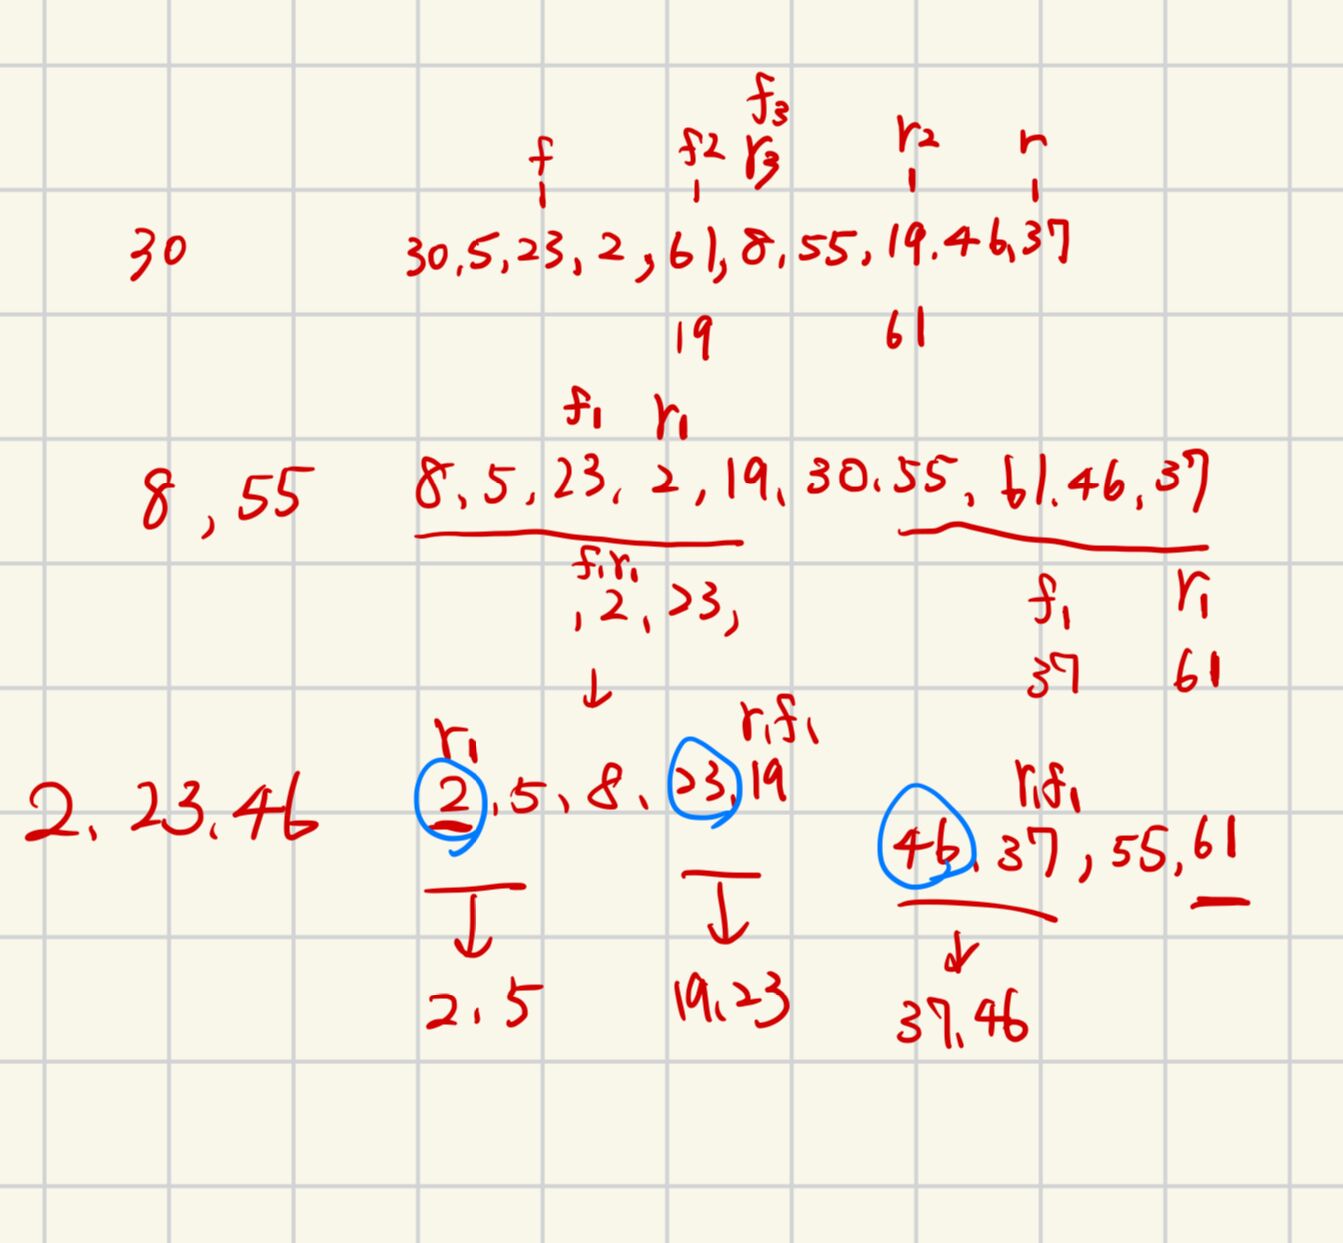 f₃
f f2 r₃ r2 r
30 30.5,23,2,61,8,55,19.46,37
19 61
f₁ r₁
8,55 8,5,23,2,19,30.55,61.46,37
f₁r₁ f₁ r₁
,2,23, 37 61
↓
r₁ r₁f₁ r₁f₁
2.23.46 2.5,8.23,19 46.37,55,61
↓ ↓ ↓
2.5 19.23 37.46